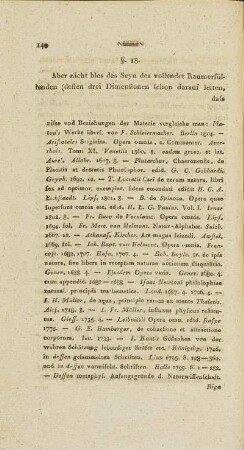 140
§. 18.
Aber nicht blos das Seyn des vollendet Raumerfül-
lenden (dessen drei Dimensionen schon darauf leiten,
dass
nisse und Beziehungen der Materie vergleiche man: Pla-
ton's Werke übers. von F. Schleiermacher. Berlin 1804. —
Aristoteles Stagirita. Opera omnia, a. Comment. Aver-
rhois. Tomi XI. Venetiis 1560.
Aur. Allobr. 1607. 8. — Plutarchus, Chaeronensis, de
Placitis et decretis Philosophor. edid. G. C.
Gryph. 1692. 12. — T. Lucretii Cari de rerum natura, libri
sex, ad optimor. exemplar. fidem recensiti edidit H. C. A.
Eichstaedt. Lips. 1801. 8. — B. de Spinoza, Opera quae
supersunt omnia etc. ed. H. E. G. Paulus. Vol. I. Ienae
1802. 8. — Fr. Baco de Verulamo, Opera omnia. Lips.
1694. fol. Fr. Merc. von Helmont,
1682. 12. — Athanas. Kircher, Ars magna sciendi. Amst.
1669. fol. — Joh. Bapt. van Helmont, Opera omnia.
1682. 1707. Hafn. 1707. 4. — Rob. Boyle, de ip-
sa natura, sive libera in receptam naturae notionem disquisitio.
Genev. 1688. 4. — Ejusdem Opera varia. Genev. 1680. 4.
cum eff. omnibus. ibid. 1682. 8. — Isaac Newtoni philosophiae
natural. principia mathematica. Lond. 1687. 4. 1726. 4. —
I. H. Müller, de aqua, principio rerum ex mente Thaletis.
Altf. 1719. 4. — I. Fr. Müller,
Giess. 1725. 4. — Leibnitzii Opera omn. edid.
1774. — G. E. Hamberger, de cohaesione et attractione
corporum. Ien. 1733. — I. Kant's Gedanken von der
wahren Schätzung lebendiger Kräfte etc. Königsbg. 1746.
in dessen gesammleten Schriften. Linz 1795. 8.
und in dessen vermischt. Schriften. Halle 1799. 8.
— Dessen metaphys. Anfangsgründe d. Naturwissenschaft.
Riga